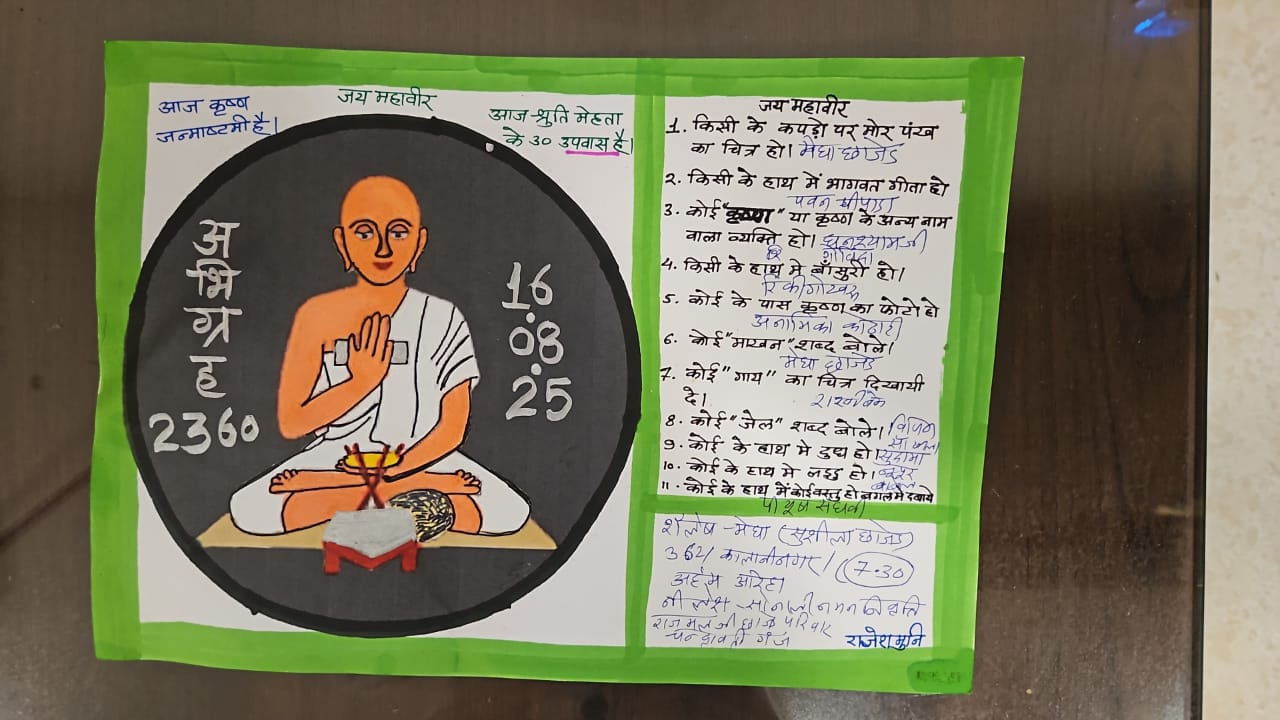 आज कृष्ण
जन्माष्टमी है।
जय महावीर
आज श्रुति मेहता
के 30 उपवास है।
अभिग्रह
2360
16.
08.
25
जय महावीर
1. किसी के कपड़ो पर मोर पंख
का चित्र हो। मेघा छाजेड
2. किसी के हाथ में भागवत गीता हो
पवन
3. कोई "कृष्ण" या कृष्ण के अन्य नाम
वाला व्यक्ति हो। घनश्यामजी
गोविंदा
4. किसी के हाथ मे बाँसुरी हो।
5. कोई के पास कृष्ण का फोटो हो
अनामिका
6. कोई "माखन" शब्द बोले।
मेघा छाजेड
7. कोई "गाय" का चित्र दिखायी
दे।
8. कोई "जेल" शब्द बोले।
9. कोई के हाथ मे दुध हो। सुदामा
10. कोई के हाथ मे लड्डु हो।
11. कोई के हाथ में कोई वस्तु हो बगल मे दबाये
पीयूष संघवी
शैलेष - मेघा (सुशीला छाजेड)
362/ कालानीनगर / 7.30
नीलेश - सोनाली नमन नियति
राजमलजी छाजेड परिवार
चन्द्रावती गंज
राजेश मुनि